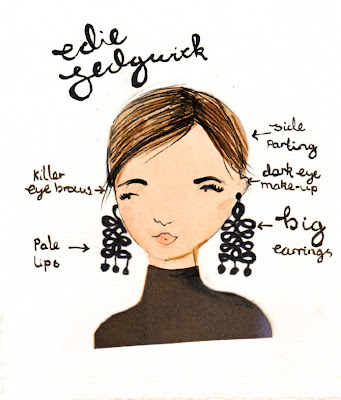 edie
sedgwick
side
parting
killer
eye brows
dark eye
make-up
big
earrings
Pale
lips